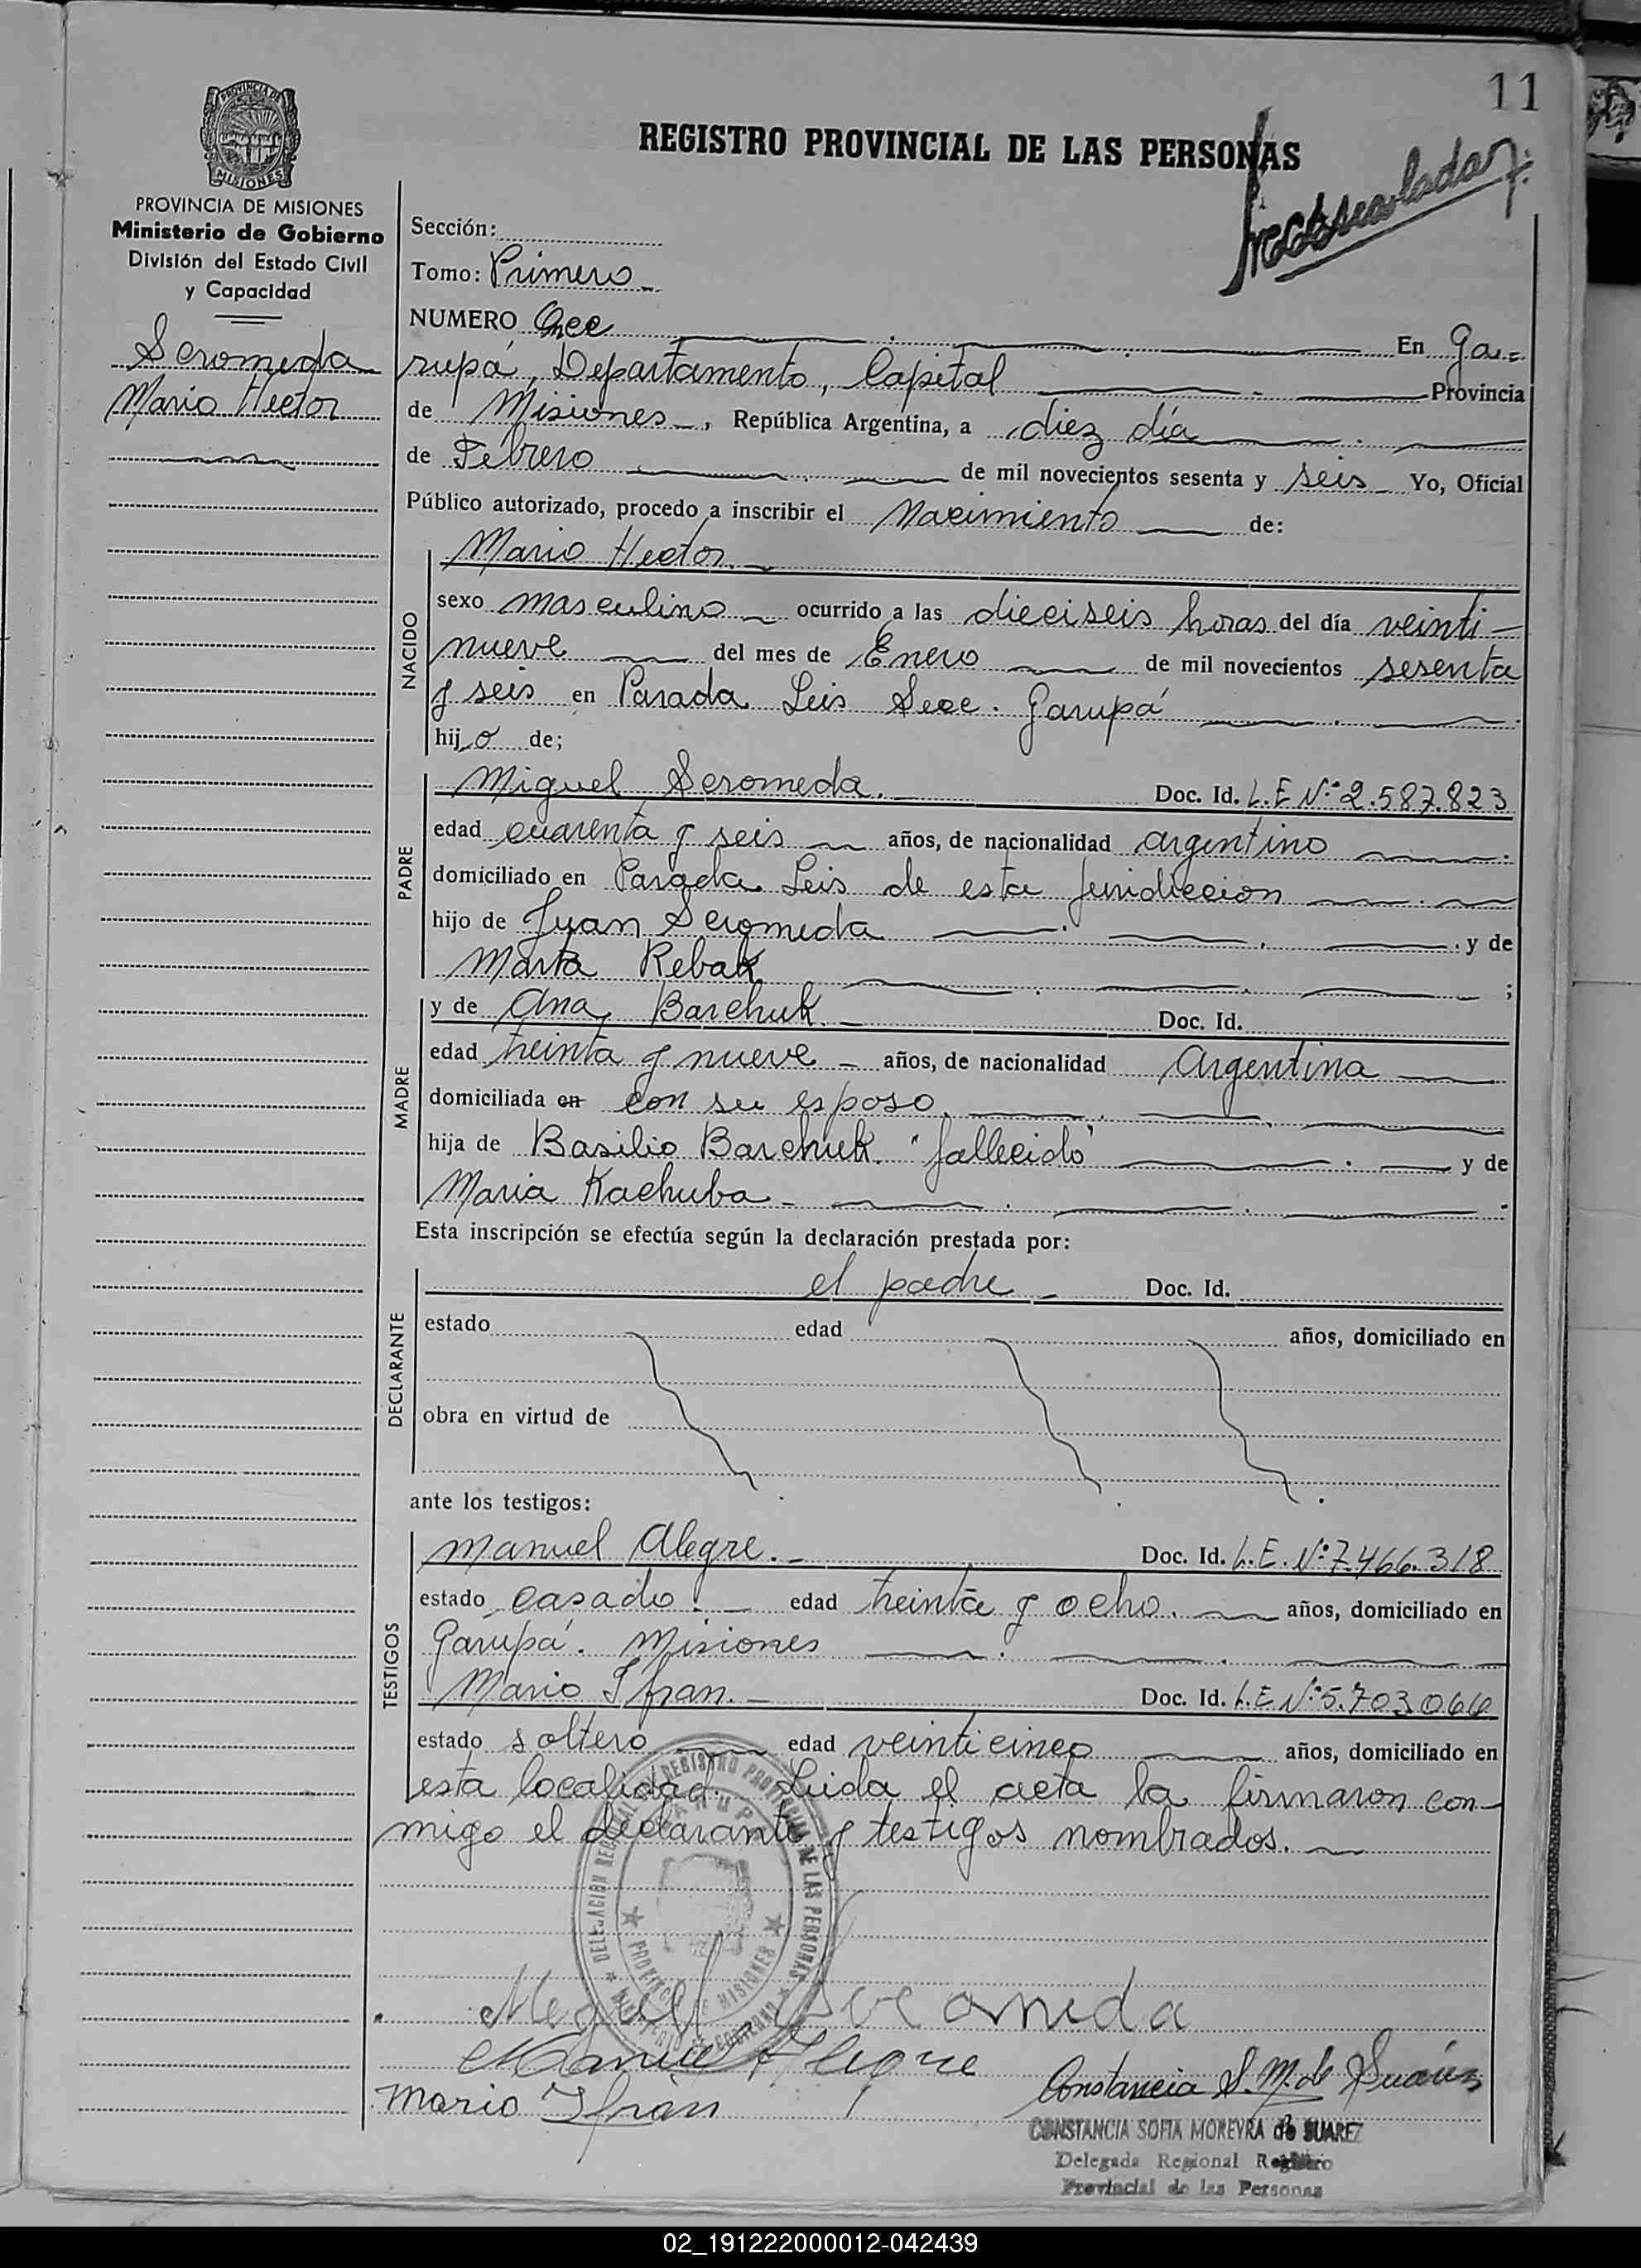 11
REGISTRO PROVINCIAL DE LAS PERSONAS
PROVINCIA DE
MISIONES
PROVINCIA DE MISIONES
Ministerio de Gobierno
División del Estado Civil
y Capacidad
Seromeda
Mario Hector
Sección:
Tomo: Primero
NUMERO Once En Ga=
rupá, Departamento, Capital Provincia
de Misiones, República Argentina, a diez día
de Febrero de mil novecientos sesenta y seis Yo, Oficial
Público autorizado, procedo a inscribir el Nacimiento de:
NACIDO
Mario Hector.
sexo masculino ocurrido a las dieciseis horas del día veinti-
nueve del mes de Enero de mil novecientos sesenta
y seis en Parada Leis Secc. Garupá
hijo de;
PADRE
Miguel Seromeda. Doc. Id. L.E Nº 2.587.823
edad cuarenta y seis años, de nacionalidad argentino
domiciliado en Parada Leis de esta juridiccion
hijo de Juan Seromeda y de
Marta Rebak ;
MADRE
y de Ana Barchuk. Doc. Id.
edad treinta y nueve años, de nacionalidad Argentina
domiciliada en con su esposo.
hija de Basilio Barchuk. "fallecido" y de
Maria Kachuba
Esta inscripción se efectúa según la declaración prestada por:
DECLARANTE
el padre Doc. Id.
estado edad años, domiciliado en
obra en virtud de
ante los testigos:
TESTIGOS
Manuel Alegre. Doc. Id. L.E. Nº 7.466.318
estado casado. edad treinta y ocho. años, domiciliado en
Garupá. Misiones
Mario Ifran. Doc. Id. L.E Nº 5.703.066
estado soltero edad veinticinco años, domiciliado en
esta localidad. Leida el acta la firmaron con-
migo el declarante y testigos nombrados.
DELEGACION REGISTRO PROVINCIAL DE LAS PERSONAS
GARUPA
PROVINCIA DE MISIONES
Miguel Seromeda
Manuel Alegre
Mario Ifran
Constancia S. M. de Suárez
CONSTANCIA SOFIA MOREYRA de SUAREZ
Delegada Regional Registro
Provincial de las Personas
02_191222000012-042439